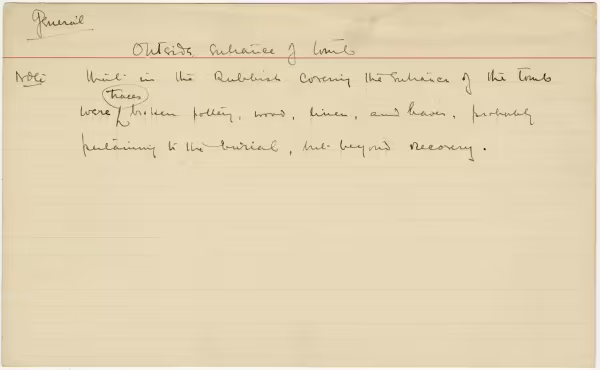 General
Outside entrance of tomb
Note that in the Rubbish covering the entrance of the tomb
traces
were broken pottery, wood, linen, and leaves, probably
pertaining to the burial, but beyond recovery.